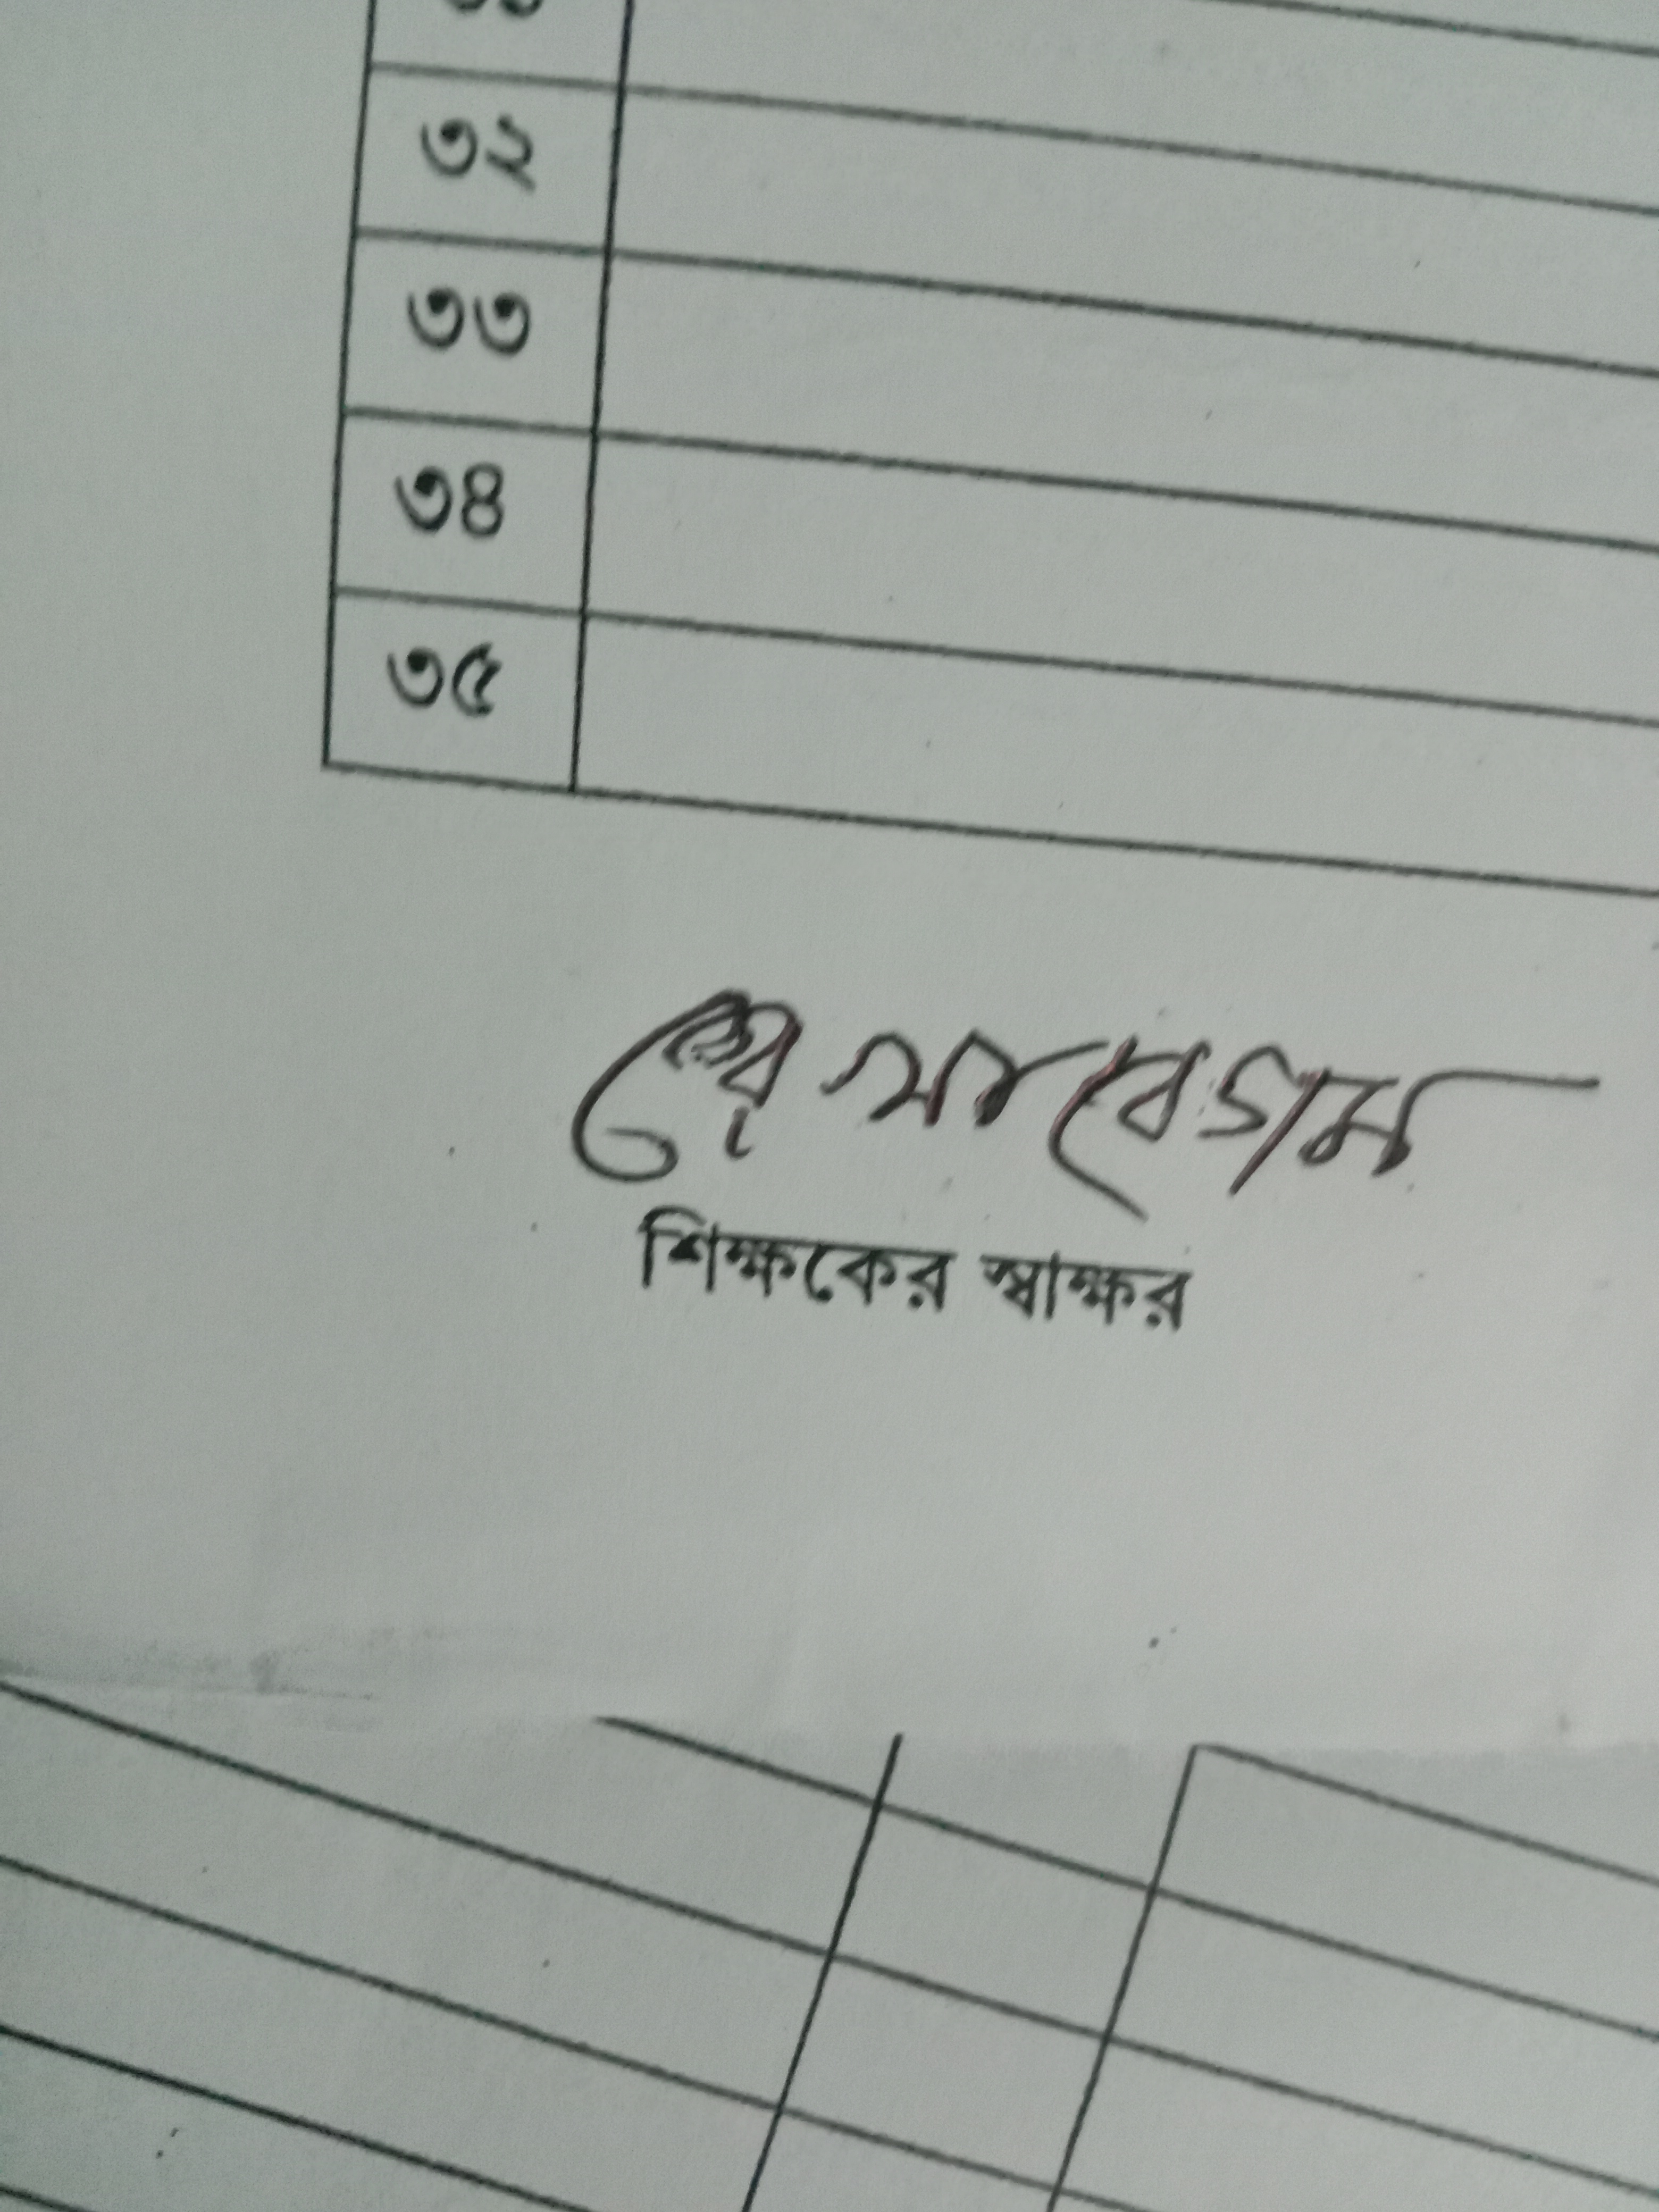 ৩২
৩৩
৩৪
৩৫
বেগম
শিক্ষকের স্বাক্ষর